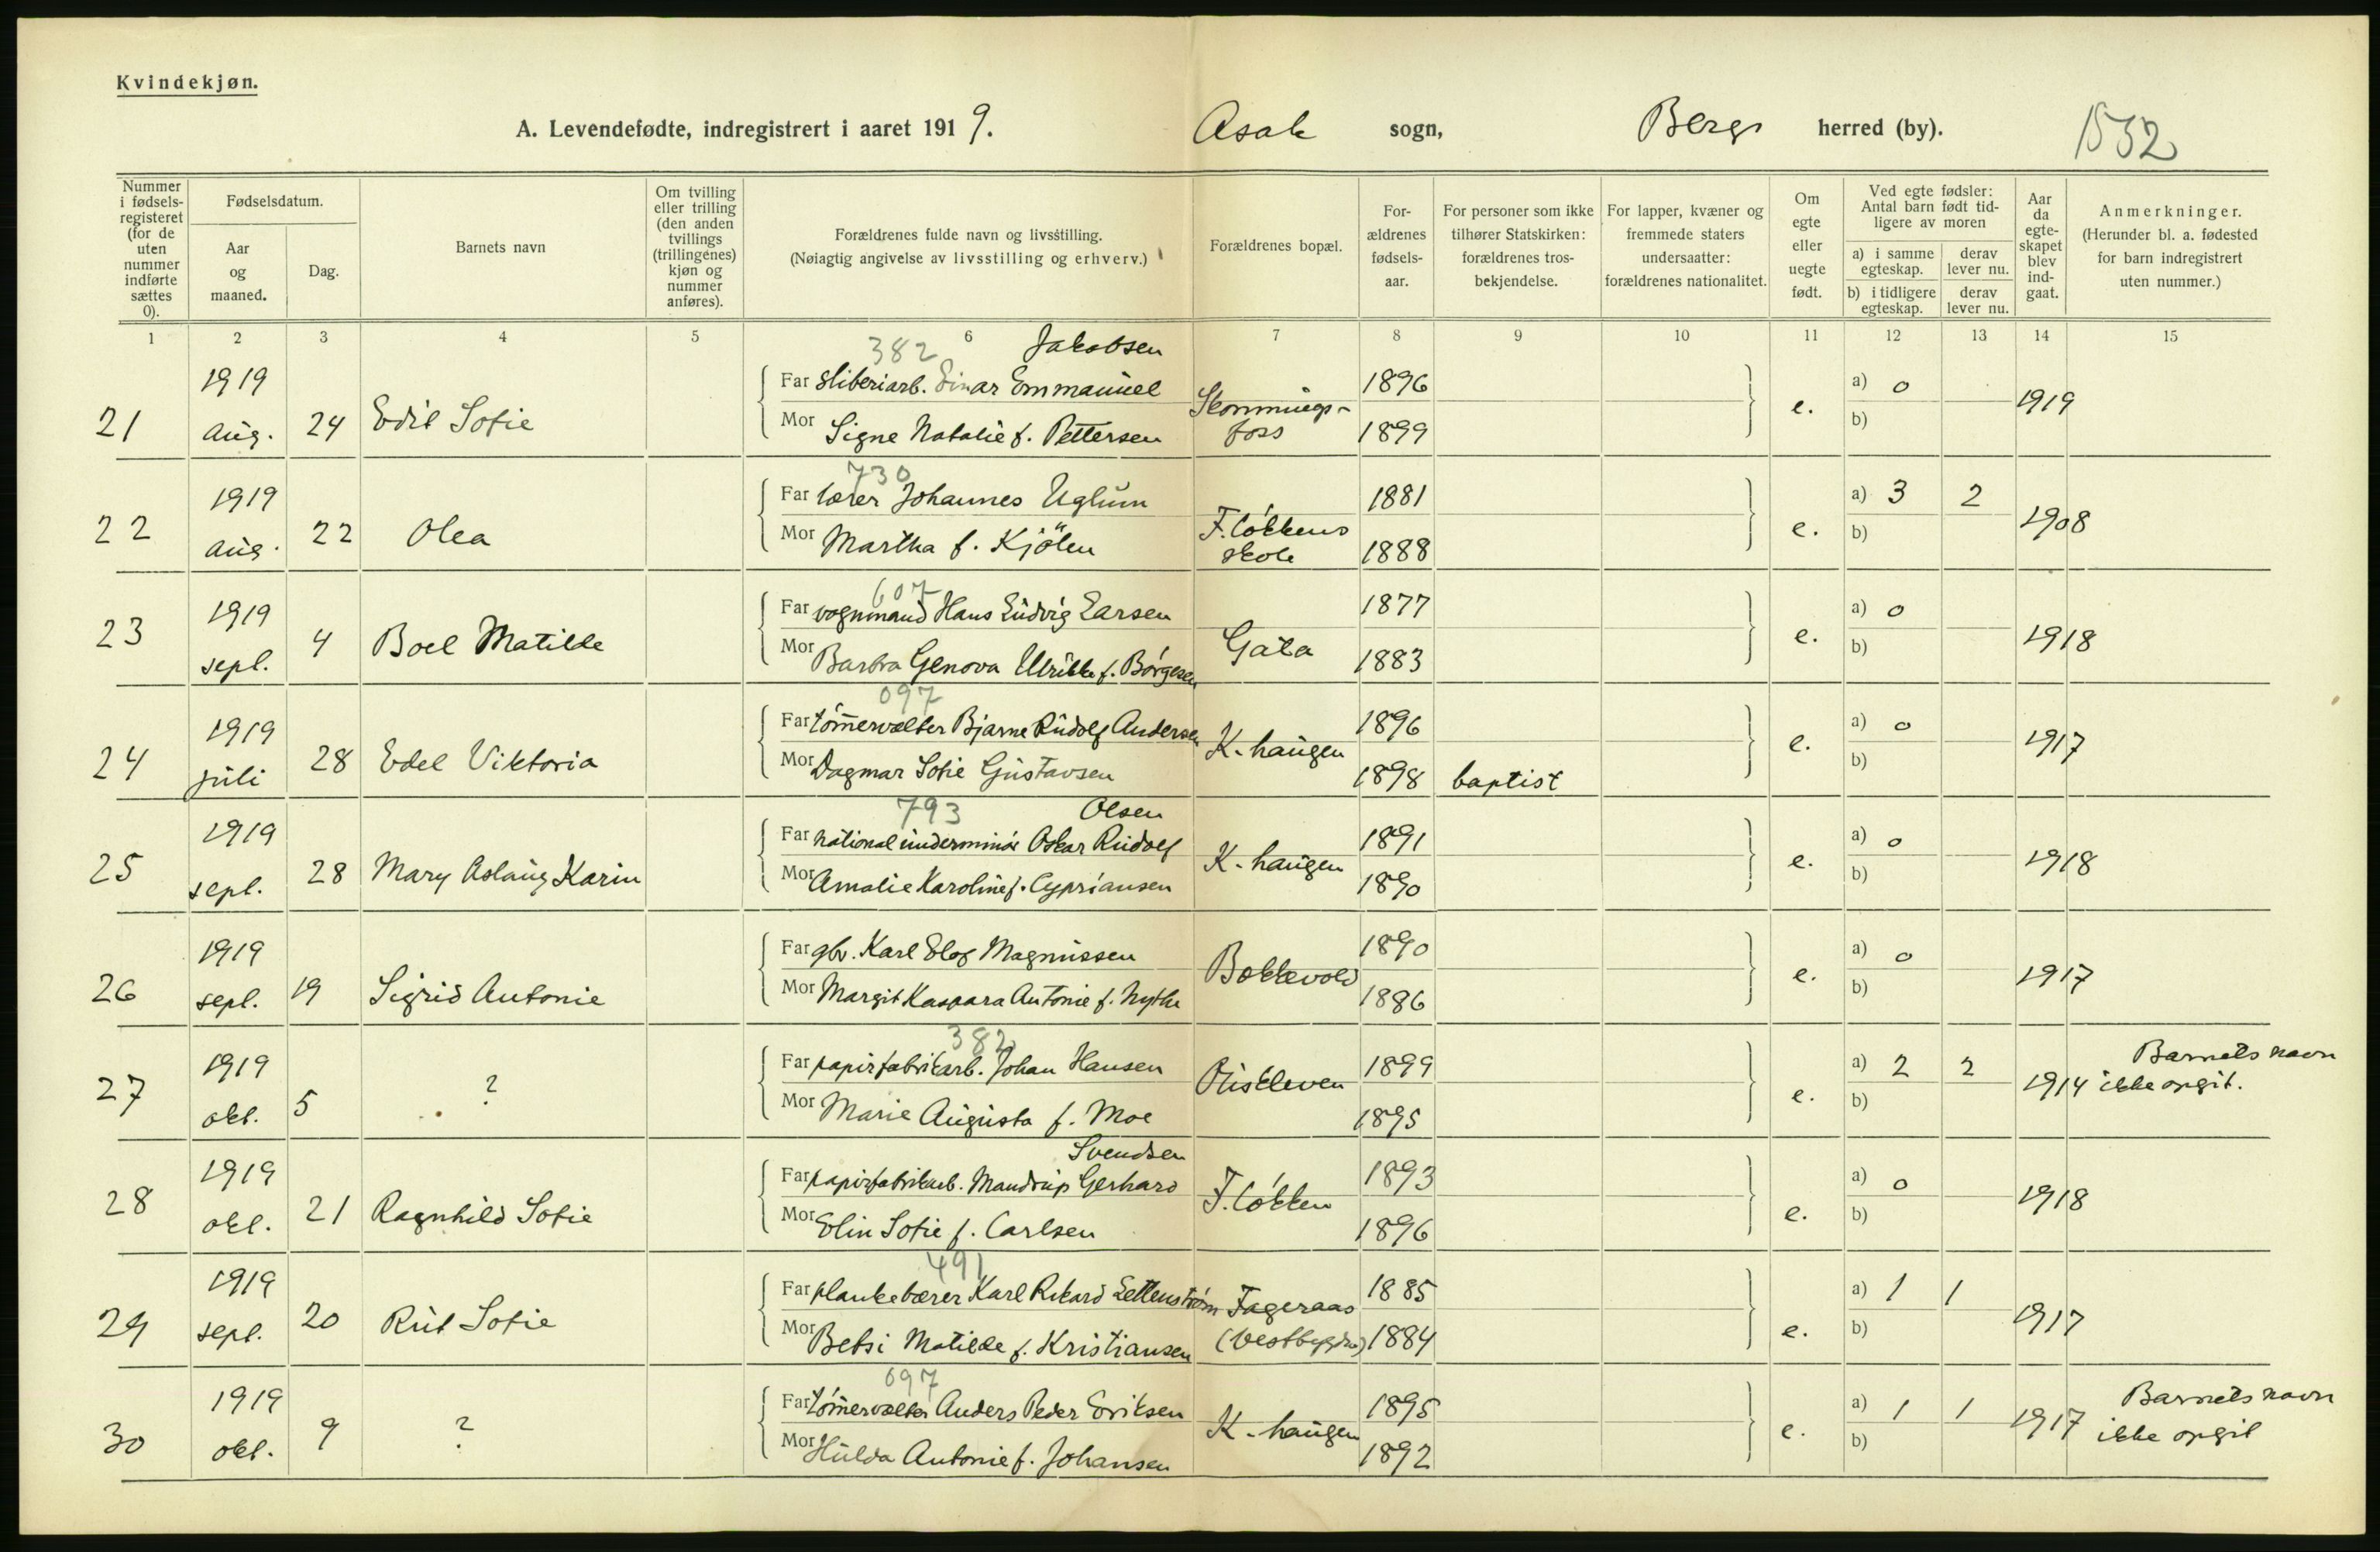 Kvindekjøn.
A. Levendefødte, indregistrert i aaret 1919. Asak sogn, Berg herred (by). 1532
Nummer i fødsels-registeret (for de uten nummer indførte sættes 0).
Fødselsdatum.
Aar og maaned.
Dag.
Barnets navn
Om tvilling eller trilling (den anden tvillings (trillingenes) kjøn og nummer anføres).
Forældrenes fulde navn og livsstilling.
(Nøiagtig angivelse av livsstilling og erhverv.)
Forældrenes bopæl.
For-ældrenes fødsels-aar.
For personer som ikke tilhører Statskirken: forældrenes tros-bekjendelse.
For lapper, kvæner og fremmede staters undersaatter: forældrenes nationalitet.
Om egte eller uegte født.
Ved egte fødsler: Antal barn født tid-ligere av moren
a) i samme egteskap. derav lever nu.
b) i tidligere egteskap. derav lever nu.
Aar da egte-skapet blev ind-gaat.
Anmerkninger.
(Herunder bl. a. fødested for barn indregistrert uten nummer.)
1 2 3 4 5 6 7 8 9 10 11 12 13 14 15
382 Jakobsen
1919 Far sliberiarb. Einar Emmanuel 1896 a) 0
21 Aug. 24 Edit Sofie Mor Signe Natalie f. Pettersen Skonnings-foss 1899 e. b) 1919
730
1919 Far lærer Johannes Uglum 1881 a) 3 2
22 Aug. 22 Olea Mor Martha f. Kjölen F. løkkens skole 1888 e. b) 1908
607
1919 Far vognmand Hans Ludvig Larsen 1877 a) 0
23 sept. 4 Boel Matilde Mor Barbra Genova Ulrikke f. Børgesen Gata 1883 e. b) 1918
097
1919 Far tømmervælter Bjarne Rudolf Andersen 1896 a) 0
24 juli 28 Edel Viktoria Mor Dagmar Sofie Gustavsen K-haugen 1898 baptist e. b) 1917
793 Olsen
1919 Far national underminør Oskar Rudolf 1891 a) 0
25 sept. 28 Mary Aslaug Karin Mor Amalie Karoline f. Cypriansen K-haugen 1890 e. b) 1918
1919 Far gbr. Karl Elof Magnussen 1890 a) 0
26 sept. 19 Sigrid Antonie Mor Margit Kaspara Antonie f. Nythe Bokkevold 1886 e. b) 1917
382
1919 Far papirfabrikarb. Johan Hansen 1899 a) 2 2 Barnets navn
27 okt. 5 ? Mor Marie Augusta f. Moe Riskleven 1895 e. b) 1914 ikke opgit.
Svendsen
1919 Far papirfabrikarb. Mandrup Gerhard 1893 a) 0
28 okt. 21 Ragnhild Sofie Mor Elin Sofie f. Carlsen F. løkken 1896 e. b) 1918
491
1919 Far plankebærer Karl Rikard Lettenstrøm Fageraas 1885 a) 1 1
29 sept. 20 Rut Sofie Mor Betsi Matilde f. Kristiansen (Vestbygda) 1884 e. b) 1917
097
1919 Far tømmervælter Anders Peder Eriksen 1895 a) 1 1 Barnets navn
30 okt. 9 ? Mor Hulda Antonie f. Johansen K-haugen 1892 e. b) 1917 ikke opgit